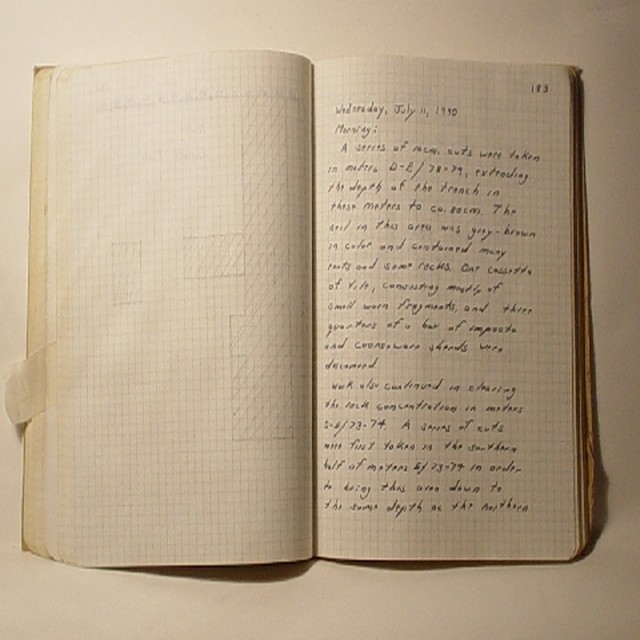 183
Wednesday, July 11, 1990
Morning:
A series of 10cm. cuts were taken
in meters D-E/78-79, extending
the depth of the trench in
these meters to ca. 80cm. The
soil in this area was grey-brown
in color and contained many
roots and some rocks. One cassetta
of tile, consisting mostly of
small worn fragments, and three
quarters of a bag of impasto
and coarseware sherds were
discarded
Work also continued in clearing
the rock concentration in meters
/73-74. A series of cuts
were first taken in the southern
half of meters E/73-74 in order
to bring this area down to
the same depth as the northern